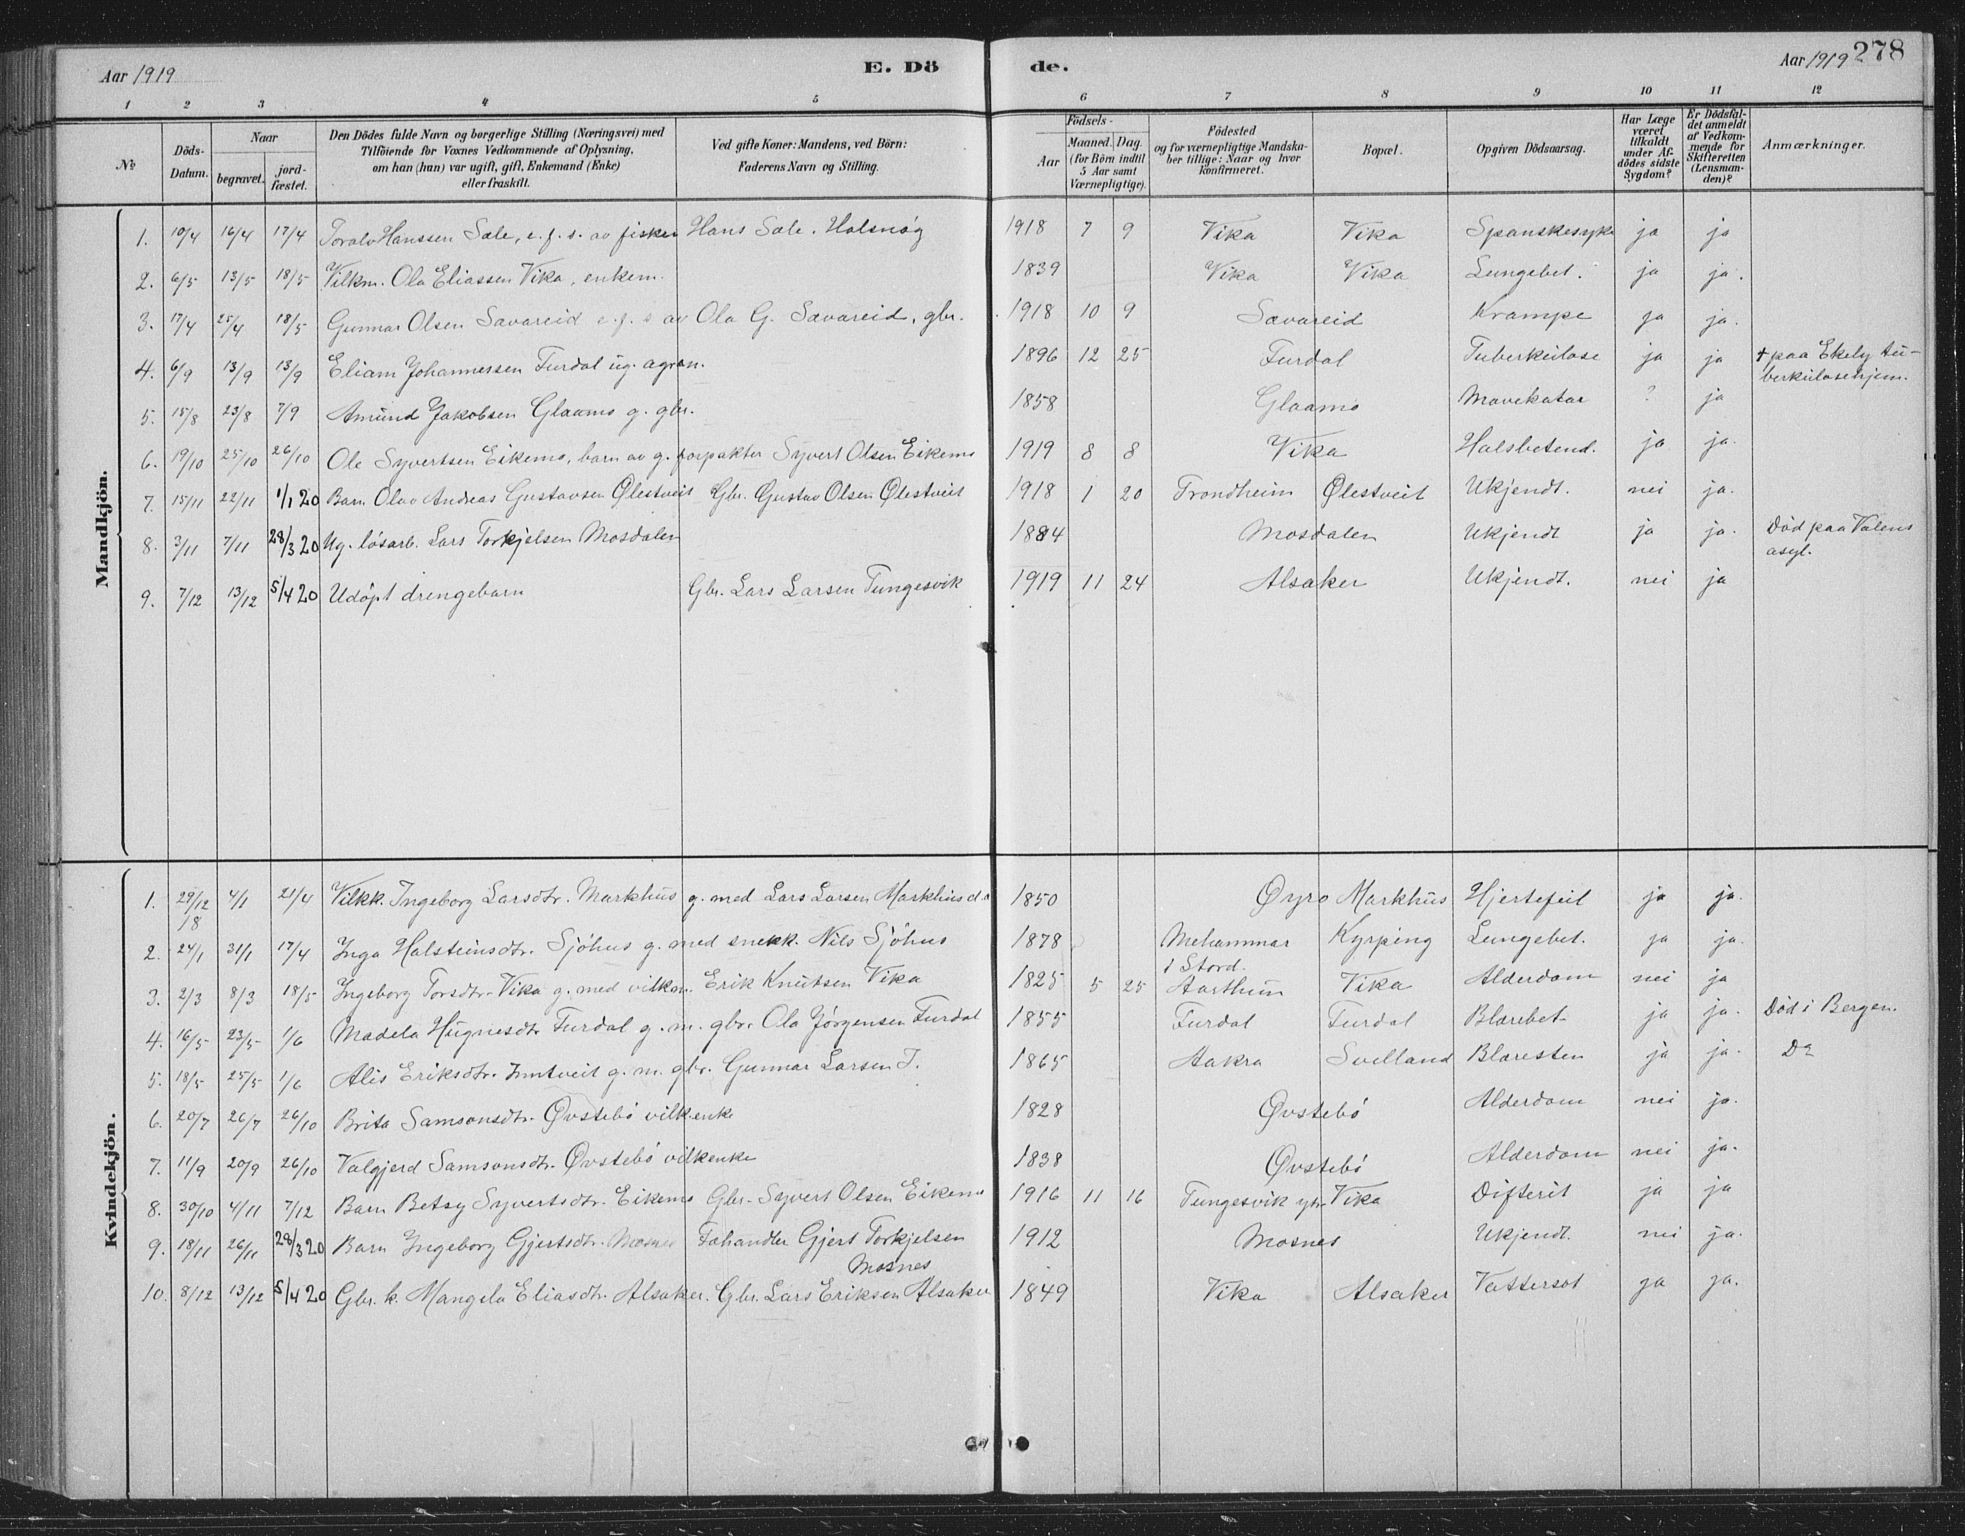 Aar 1919 E. Dö de. Aar 1919 278
1 2 3 4 5 6 7 8 9 10 11 12
№ Döds-Datum. Naar begravet. jord-fæstet. Den Dödes fulde Navn og borgerlige Stilling (Næringsvei) med Tilföiende for Voxnes Vedkommende af Oplysning, om han (hun) var ugift, gift, Enkemand (Enke) eller fraskilt. Ved gifte Koner: Mandens, ved Börn: Faderens Navn og Stilling. Födsels- Aar Maaned. Dag. (for Börn indtil 5 Aar samt Værnepligtige). Födested og for værnepligtige Mandska-ber tillige: Naar og hvor konfirmeret. Bopæl. Opgiven Dödsaarsag. Har Læge været tilkaldt under Af-dödes sidste Sygdom? Er Dödsfal-det anmeldt af Vedkom-mende for Skifteretten (Lensman-den)? Anmærkninger.
Mandkjön.
1. 10/4 16/4 17/4 Toralv Hanssen Sæle, e.f.s. av fisker Hans Sæle. Halsnøy 1918 7 9 Vika Vika Spanskesyke ja ja
2. 6/5 13/5 18/5 Vilkm. Ola Eliassen Vika, enkem. 1839 Vika Vika Lungebet. ja ja.
3. 17/4 25/4 18/5 Gunnar Olsen Sævareid e.f.s av Ola G. Sævareid, gbr. 1918 10 9 Sævareid Krampe ja ja.
4. 6/9 13/9 13/9 Eliam Johannessen Furdal ug. agron. 1896 12 25 Furdal Tuberkulose ja ja + paa Ekely tu-
berkulosehjem.
5. 15/8 23/8 7/9 Amund Jakobsen Glaamo g. gbr. 1858 Glaamo Mavekatar ? ja
6. 19/10 25/10 26/10 Ole Syvertsen Eikemo, barn av g. forpakter Syvert Olsen Eikemo 1919 8 8 Vika Halsbetend. ja ja.
7. 15/11 22/11 1/1 20 Barn Olav Andreas Gustavsen Ølestveit Gbr. Gustav Olsen Ølestveit 1918 1 20 Trondheim Ølestveit Ukjendt. nei ja.
8. 3/11 7/11 28/3 20 Ug. løsarb. Lars Torkjelsen Mosdalen 1884 Mosdalen Ukjendt ja ja. Død paa Valens
asyl.
9. 7/12 13/12 5/4 20 Udøpt drengebarn Gbr. Lars Larsen Tungesvik 1919 11 24 Alsaker Ukjendt. nei ja
Kvindekjön.
1. 29/12 18 4/1 21/4 Vilkk. Ingeborg Larsdtr. Markhus g. med Lars Larsen Markhus 1850 Øyro Markhus Hjertefeil ja ja.
2. 24/1 31/1 17/4 Inga Halsteinsdtr. Sjøhus g. med snekk. Nils Sjøhus 1878 Mehammar
i Stord. Kyrping Lungebet. ja ja.
3. 2/3 8/3 18/5 Ingeborg Torsdtr. Vika g. med vilkm. Erik Knutsen Vika 1825 5 25 Aarthun Vika Alderdom nei ja
4. 16/5 23/5 1/6 Madela Hugnesdtr Furdal g. m. gbr. Ola Jørgensen Furdal 1855 Furdal Furdal Blærebet. ja ja. Død i Bergen.
5. 18/5 25/5 1/6 Alis Eriksdtr. Inntveit g. m. gbr. Gunnar Larsen I. 1865 Aakra Svelland Blæresten ja ja. Do
6. 20/7 26/7 26/10 Brita Samsonsdtr. Øvstebø vilkenke 1828 Øvstebø Alderdom nei ja.
7. 11/9 20/9 26/10 Valgjerd Samsonsdtr. Øvstebø vilkenke 1838 Øvstebø Alderdom nei ja.
8. 30/10 4/11 7/12 Barn Betsy Syvertsdtr. Eikemo Gbr. Syvert Olsen Eikemo 1916 11 16 Tungesvik ytr. Vika Difterit ja ja
9. 18/11 26/11 28/3 20 Barn Ingeborg Gjertsdtr. Mosnes Fæhandler Gjert Torkjelsen
Mosnes 1912 Mosnes Ukjendt. nei ja.
10. 8/12 13/12 5/4 20 Gbr. k. Mangela Eliasdtr. Alsaker. Gbr. Lars Eriksen Alsaker 1849 Vika Alsaker Vattersot ja ja.